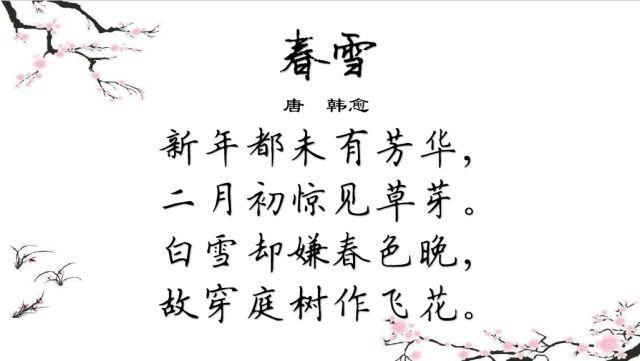 春雪
唐　韩愈
新年都未有芳华，
二月初惊见草芽。
白雪却嫌春色晚，
故穿庭树作飞花。